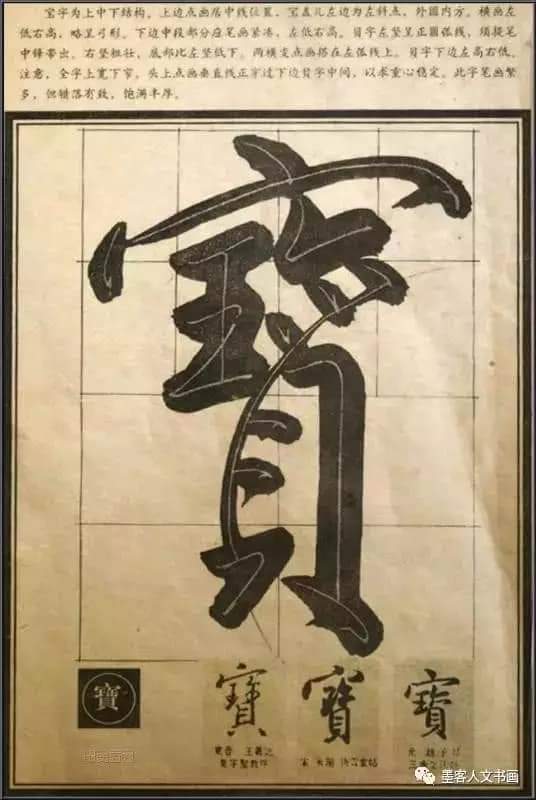 宝字为上中下结构。上边点画居中线位置，宝盖儿左边为左斜点，外圆内方。横画左
低右高，略呈弓形。下边中段部分应笔画紧凑，左低右高。贝字左竖呈正圆弧线，须提笔
中锋带出。右竖粗壮，底部比左竖低下。两横变点画搭在左弧线上。贝字下边左高右低。
注意，全字上宽下窄，头上点画垂直线正穿过下边贝字中间，以求重心稳定。此字笔画繁
多，但错落有致，饱满丰厚。
寶
寶
寶 寶 寶
东晋 王羲之
集字聖教序
宋 米芾
元 趙子昂
墨客人文书画